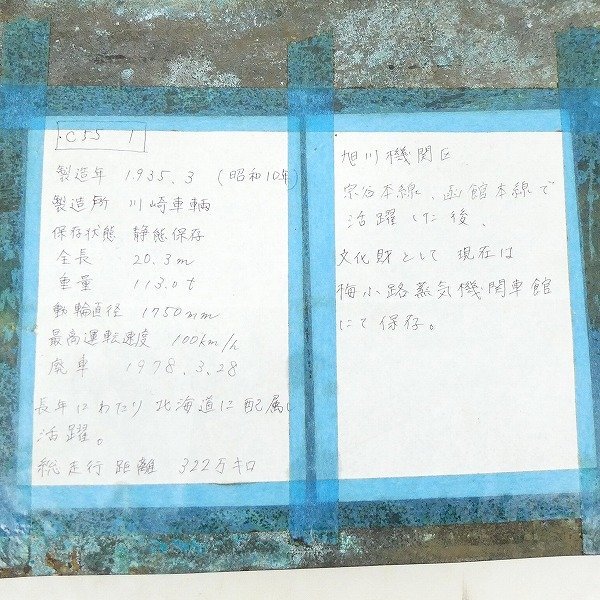 C55 1
製造年 1935.3 (昭和10年)
製造所 川崎車輛
保存状態 静態保存
全長 20.3m
重量 113.0t
動輪直径 1750mm
最高運転速度 100km/h
廃車 1978.3.28
長年にわたり 北海道に配属し
活躍。
総走行距離 322万キロ
旭川機関区
宗谷本線、函館本線で
活躍した後、
文化財として 現在は
梅小路蒸気機関車館
にて保存。